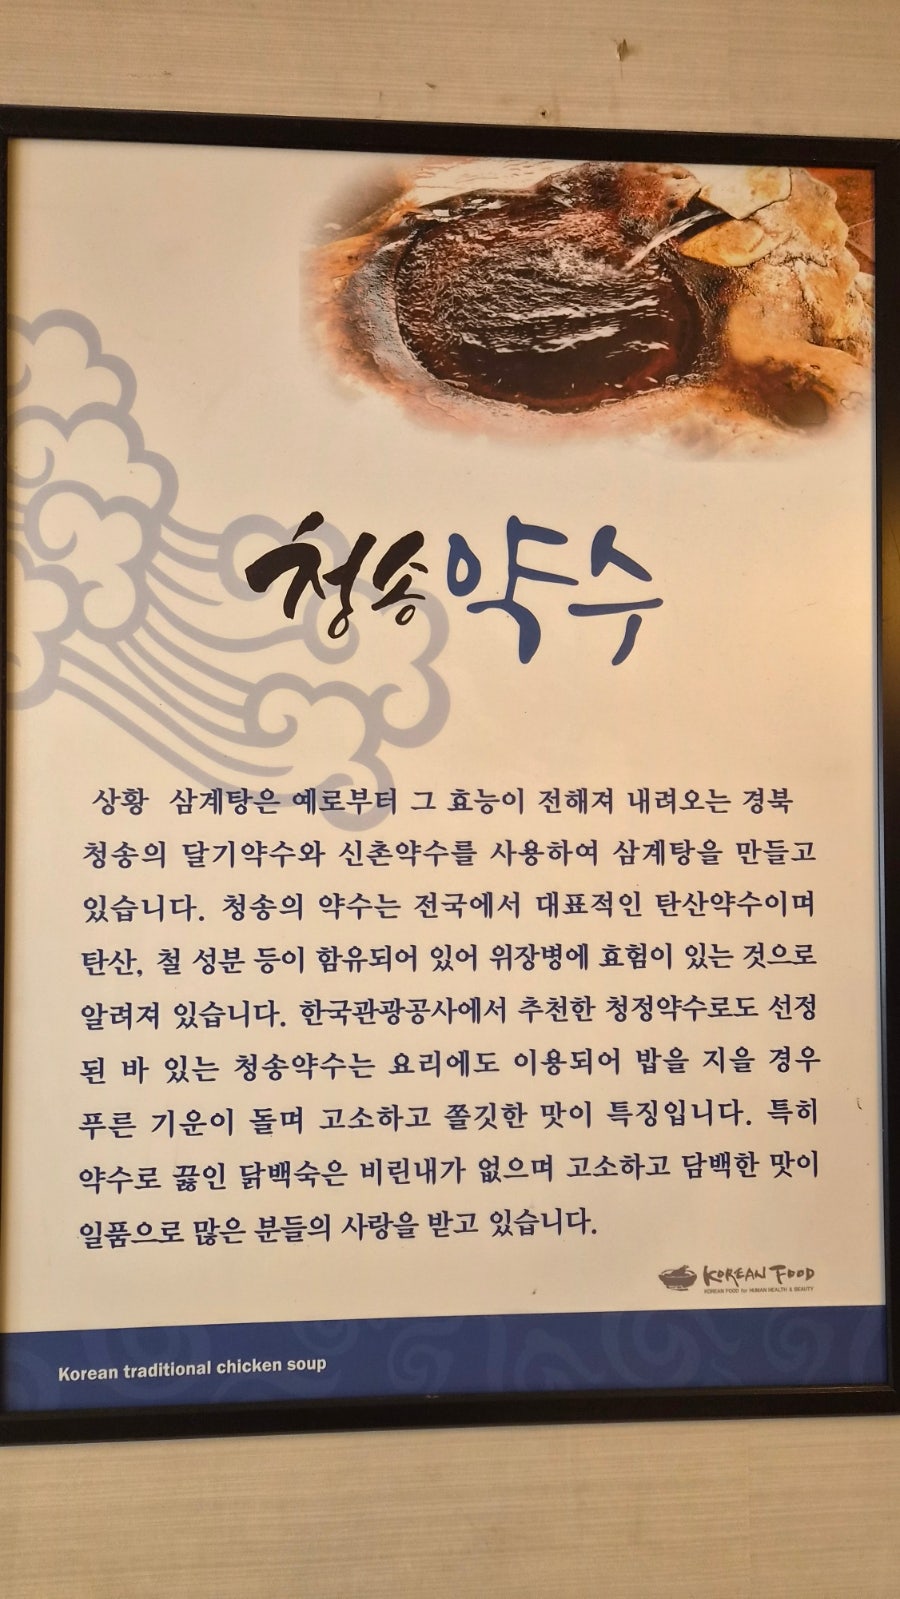 청송약수
상황 삼계탕은 예로부터 그 효능이 전해져 내려오는 경북
청송의 달기약수와 신촌약수를 사용하여 삼계탕을 만들고
있습니다. 청송의 약수는 전국에서 대표적인 탄산약수이며
탄산, 철 성분 등이 함유되어 있어 위장병에 효험이 있는 것으로
알려져 있습니다. 한국관광공사에서 추천한 청정약수로도 선정
된 바 있는 청송약수는 요리에도 이용되어 밥을 지을 경우
푸른 기운이 돌며 고소하고 쫄깃한 맛이 특징입니다. 특히
약수로 끓인 닭백숙은 비린내가 없으며 고소하고 담백한 맛이
일품으로 많은 분들의 사랑을 받고 있습니다.
KOREAN FOOD
KOREAN FOOD for HUMAN HEALTH & BEAUTY
Korean traditional chicken soup